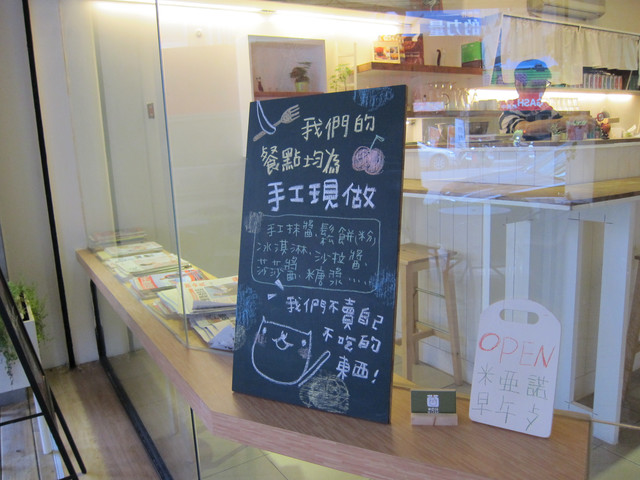 我們的
餐點均為
手工現做
手工抹醬、鬆餅(粉)
冰淇淋、沙拉醬、
莎莎醬、糖漿....
我們不賣自己
不吃的
東西!
OPEN
米亞諾
早午夕